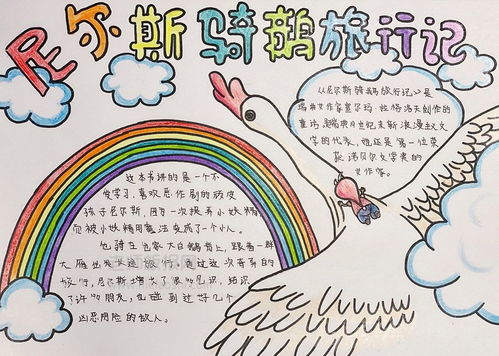 尼尔斯骑鹅旅行记
《尼尔斯骑鹅旅行记》是
瑞典女作家塞尔玛·拉格洛夫创作的
童话,
学的代表,也正是第一位荣
获诺贝尔文学奖的
女作家。
这本书讲的是一个不
爱学习,喜欢恶作剧的顽皮
孩子尼尔斯,因为一次捉弄小妖精
而被小妖精用魔法变成了一个小人。
他骑在白家大白鹅背上,跟着一群
大雁出发
旅行,尼尔斯增长了很多见识,结识
了许多朋友,也碰到过好几个
凶恶阴险的敌人。